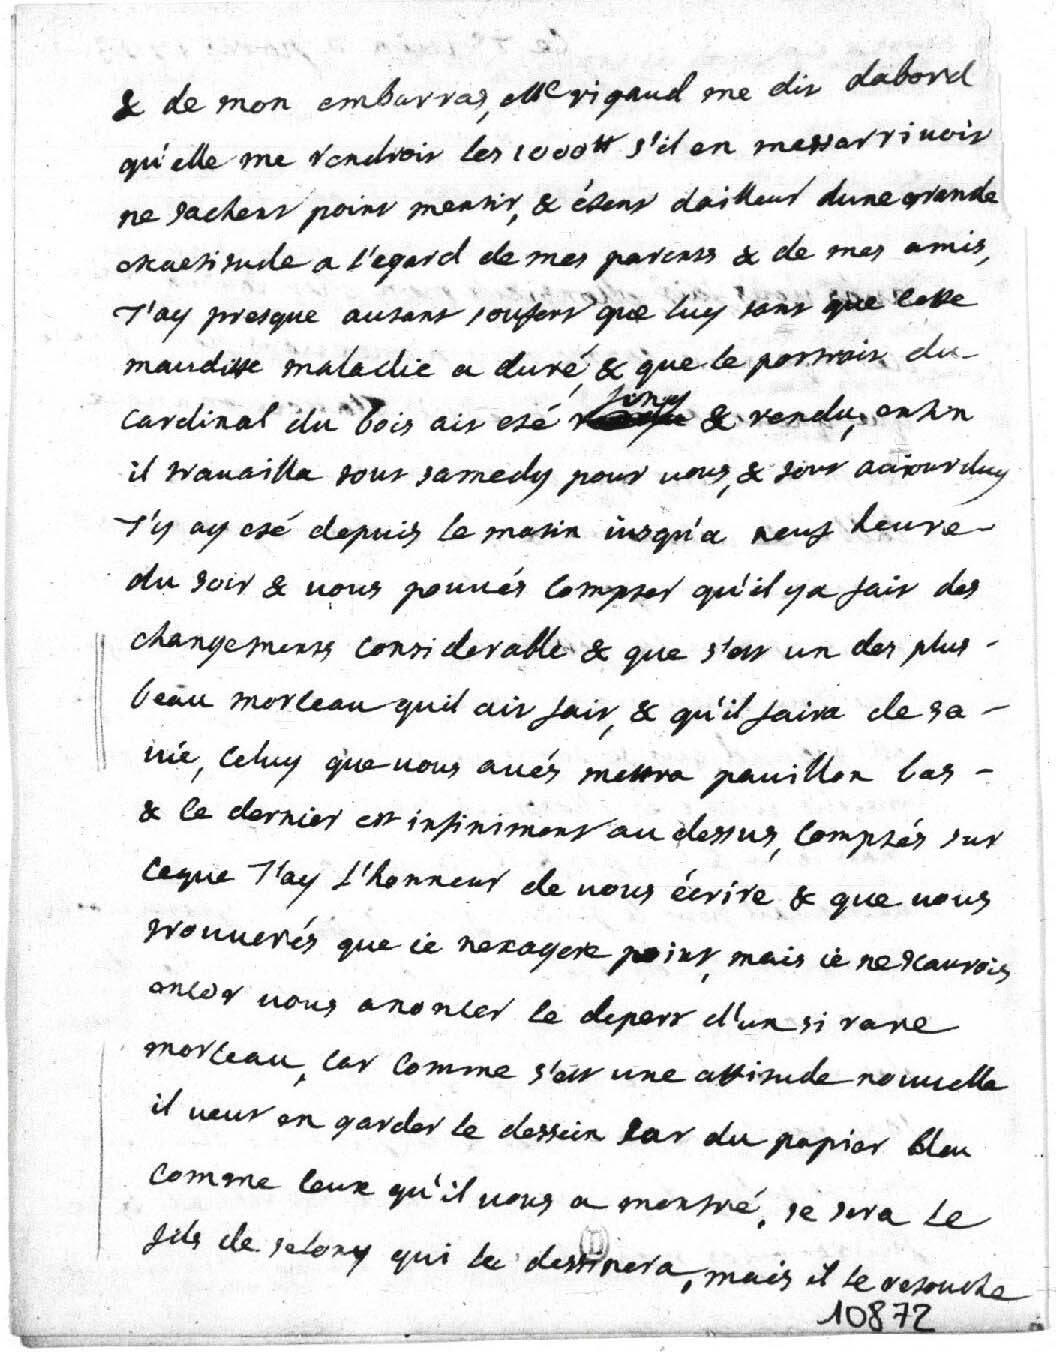 & de mon embarras, Mlle rigaud me dit dabord
qu'elle me rendroit les 1000tt s'il en messarrivoit
ne sachent point mentir, & étent dailleur dune grande
exactitude a l'egard de mes parents & de mes amis,
J'ay presque autant soufert que luy tant que cette
maudite maladie a duré, & que le portrait du
cardinal du bois ait eté finy & rendu, enfin
il travailla tout samedy pour vous, & tout aujourduy
J'y ay eté depuis le matin iusqu'a neuf heure
du soir & vous pouvés compter qu'il y a fait des
changements considerable & que s'est un des plus
beau morceau quil ait fait, & qu'il faira de sa
vie, celuy que vous avés mettra pavillon bas
& le dernier est infiniment au dessus, comptés sur
ceque J'ay l'honneur de vous écrire & que vous
trouverés que ie nexagere point, mais ie ne scaurois
encor vous anoncer le depart d'un si rare
morceau, car comme s'est une attitude nouvelle
il veut en garder le dessein sur du papier bleu
comme ceux qu'il vous a montré, se sera le
fils de delony qui le dessinera, mais il le retouche
10872